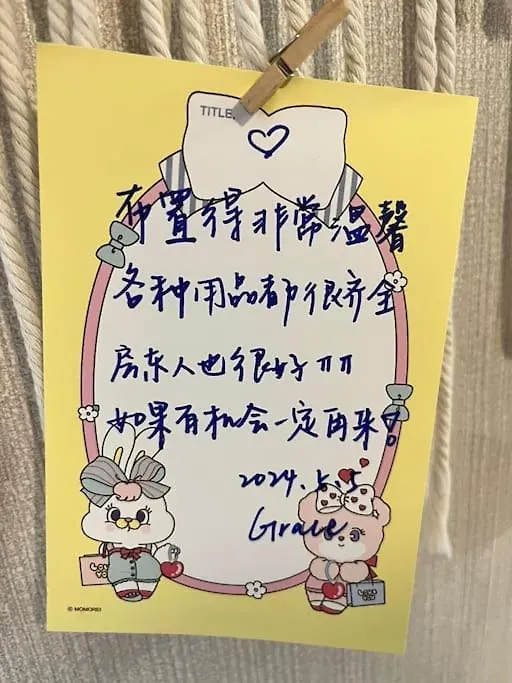 TITLE.
♡
布置得非常温馨
各种用品都很齐全
房东人也很好ππ
如果有机会一定再来!
2024.5.5
Grace
LOVE YOU
LOVE YOU
© MOMOREI